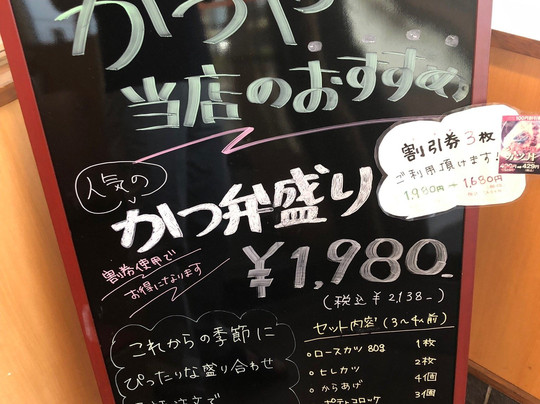 かつや
当店のおすすめ
人気の
かつ弁盛り
割引券3枚
ご利用頂けます!
1,980円→1,680円
割券使用で
お得になります
¥1,980-
(税込¥2,138-)
これからの季節に
ぴったりな盛り合わせ
セット内容(3~4人前)
・ロースカツ 80g 1枚
・ヒレカツ 2枚
・からあげ 4個
ポテトコロッケ 3個